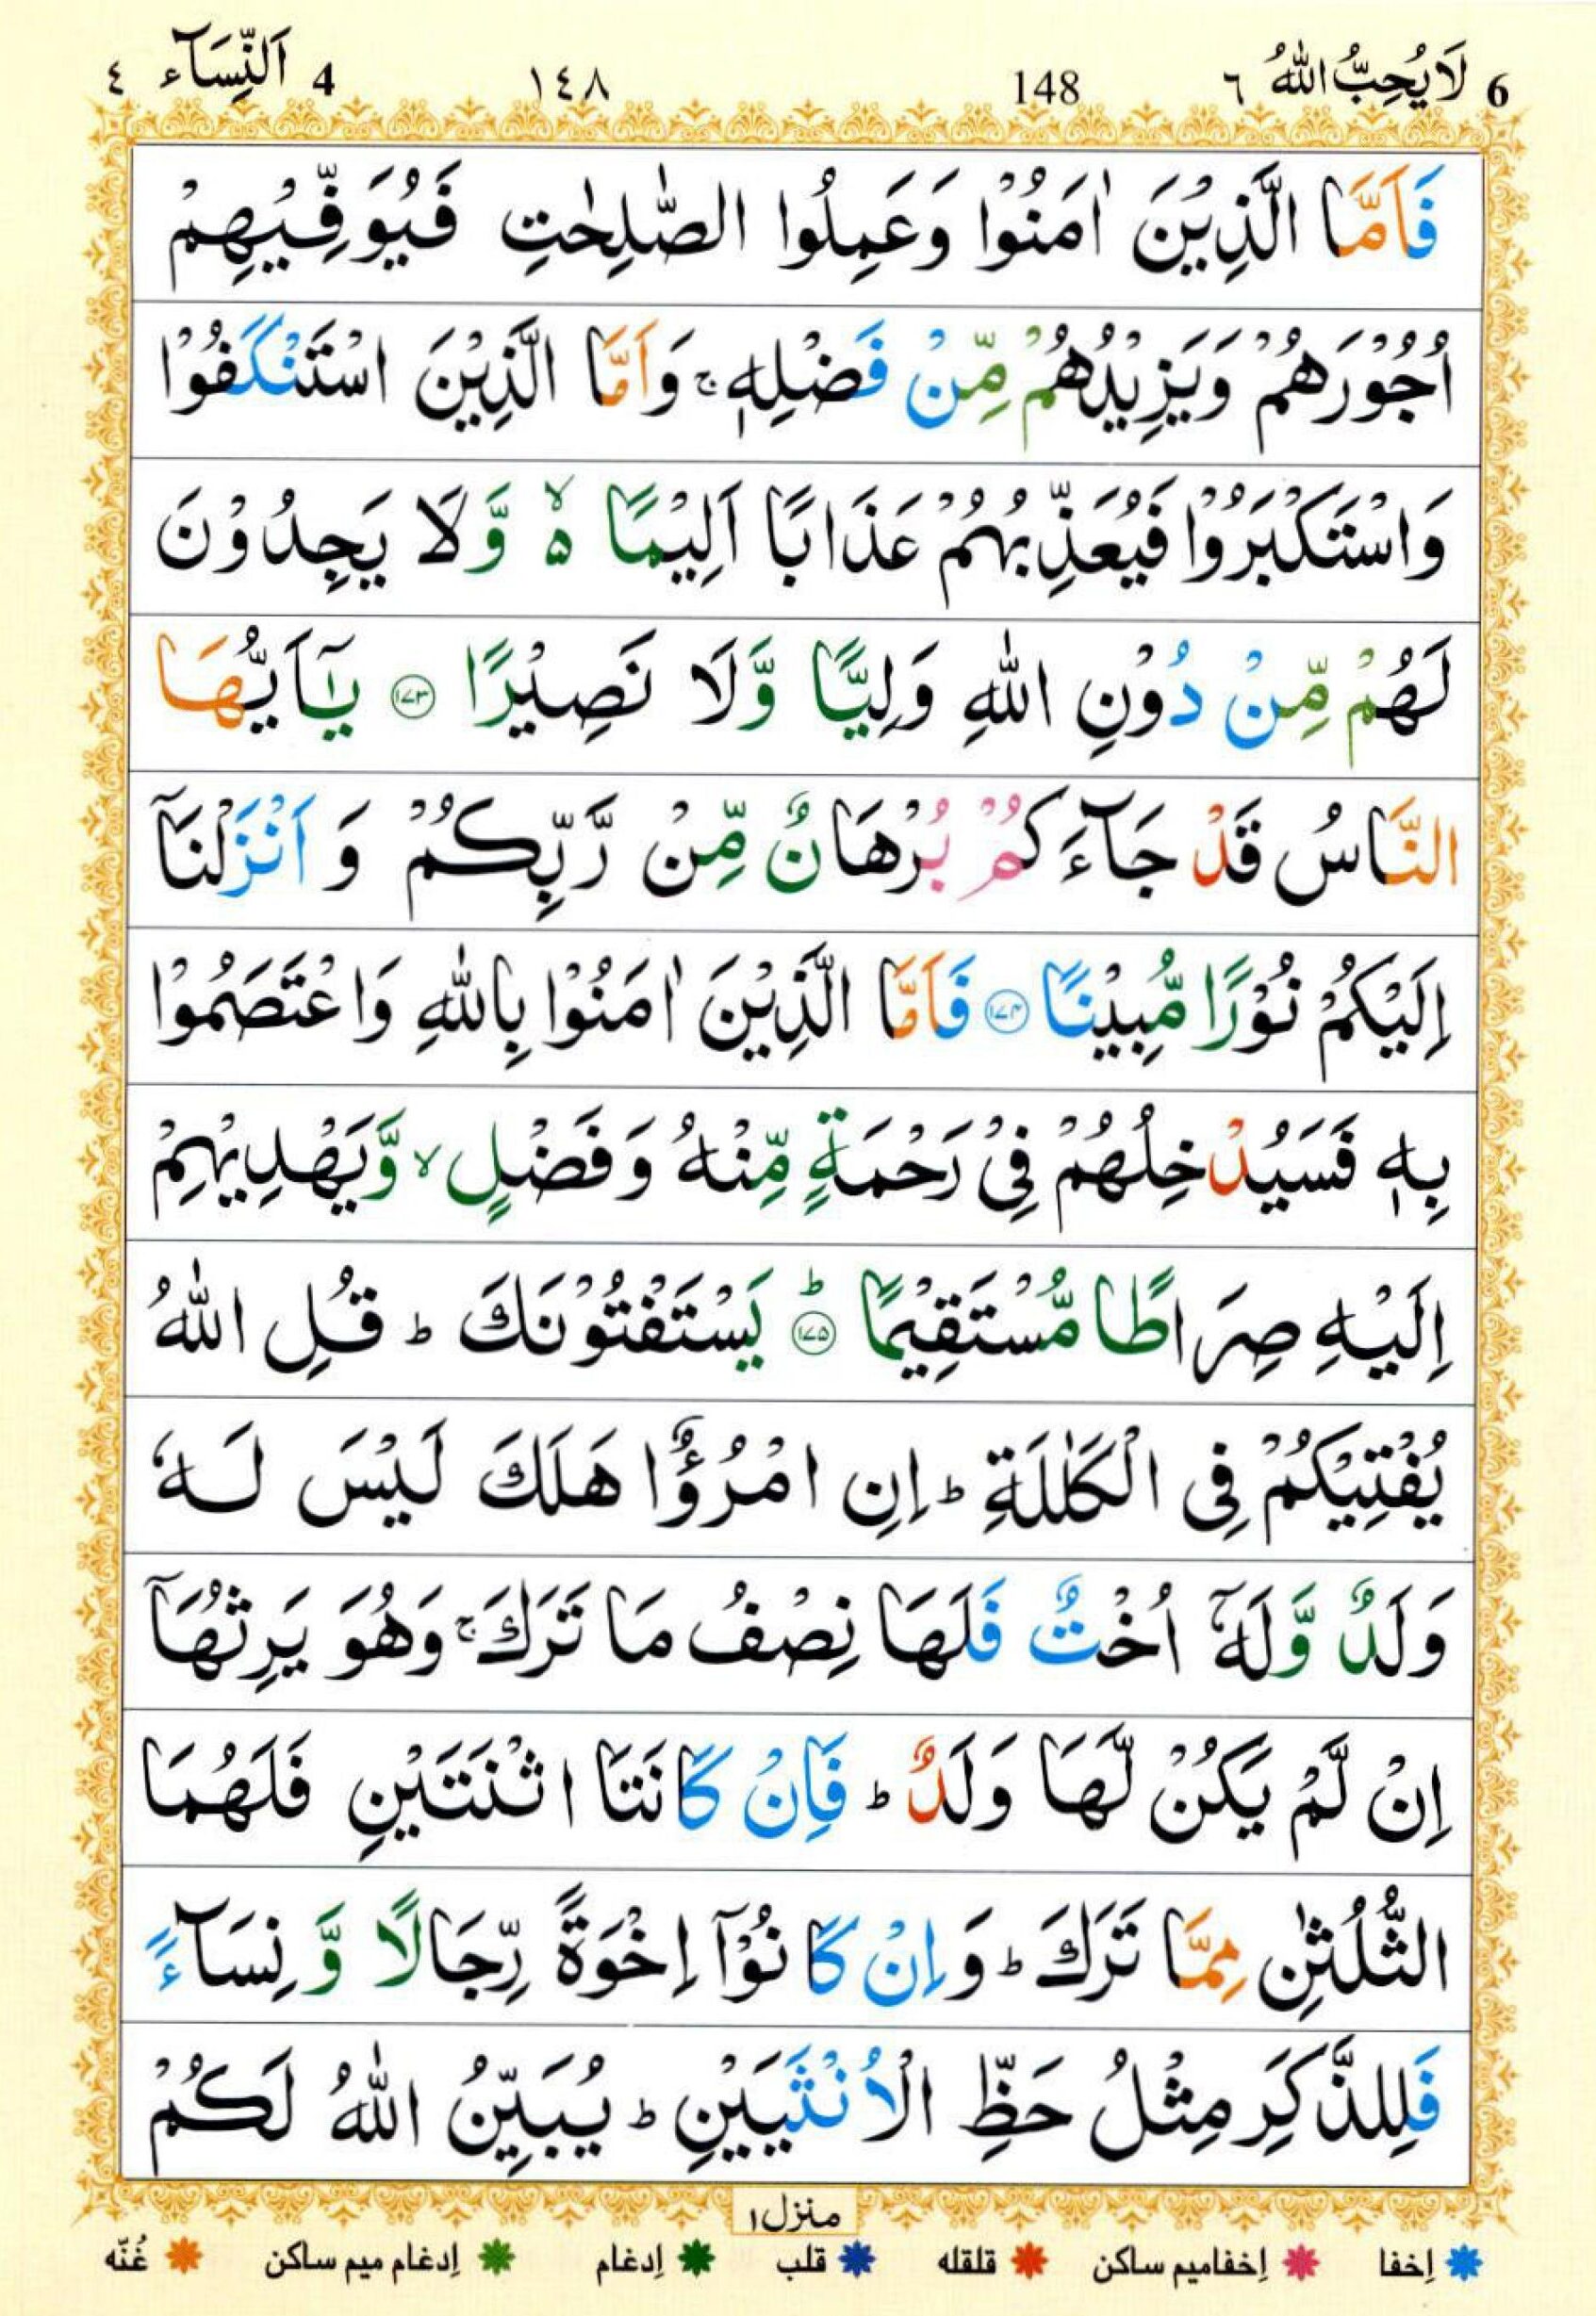 6 لَا يُحِبُّ اللّٰهُ ٦ 148 ١٤٨ 4 اَلنِّسَآء ٤
فَاَمَّا الَّذِيْنَ اٰمَنُوْا وَعَمِلُوا الصّٰلِحٰتِ فَيُوَفِّيْهِمْ
اُجُوْرَهُمْ وَيَزِيْدُهُمْ مِّنْ فَضْلِهٖ ۚ وَاَمَّا الَّذِيْنَ اسْتَنْكَفُوْا
وَاسْتَكْبَرُوْا فَيُعَذِّبُهُمْ عَذَابًا اَلِيْمًا ۙ۵ وَّلَا يَجِدُوْنَ
لَهُمْ مِّنْ دُوْنِ اللّٰهِ وَلِيًّا وَّلَا نَصِيْرًا ۝۱۷۳ يٰۤاَيُّهَا
النَّاسُ قَدْ جَآءَكُمْ بُرْهَانٌ مِّنْ رَّبِّكُمْ وَ اَنْزَلْنَاۤ
اِلَيْكُمْ نُوْرًا مُّبِيْنًا ۝۱۷۴ فَاَمَّا الَّذِيْنَ اٰمَنُوْا بِاللّٰهِ وَاعْتَصَمُوْا
بِهٖ فَسَيُدْخِلُهُمْ فِيْ رَحْمَةٍ مِّنْهُ وَفَضْلٍ ۙ وَّيَهْدِيْهِمْ
اِلَيْهِ صِرَاطًا مُّسْتَقِيْمًا ؕ۝۱۷۵ يَسْتَفْتُوْنَكَ ؕ قُلِ اللّٰهُ
يُفْتِيْكُمْ فِى الْكَلٰلَةِ ؕ اِنِ امْرُؤٌا هَلَكَ لَيْسَ لَهٗ
وَلَدٌ وَّلَهٗۤ اُخْتٌ فَلَهَا نِصْفُ مَا تَرَكَ ۚ وَهُوَ يَرِثُهَاۤ
اِنْ لَّمْ يَكُنْ لَّهَا وَلَدٌ ؕ فَاِنْ كَانَتَا اثْنَتَيْنِ فَلَهُمَا
الثُّلُثٰنِ مِمَّا تَرَكَ ؕ وَاِنْ كَانُوْۤا اِخْوَةً رِّجَالًا وَّ نِسَآءً
فَلِلذَّكَرِ مِثْلُ حَظِّ الْاُنْثَيَيْنِ ؕ يُبَيِّنُ اللّٰهُ لَكُمْ
منزل۱
إخفا إخفامیم ساکن قلقله قلب إدغام إدغام میم ساکن غُنّه